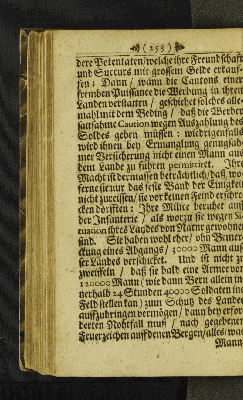 (253)
dere Potentaten/welche ihre Freundschafft
und Succurs mit grossem Gelde erkauf-
fen: Dann / wann die Cantons einer
frembden Puissance die Werbung in ihren
Landen verstatten / geschiehet solches alle-
mahl mit dem Beding / daß die Werber
sattsahme Caution wegen Auszahlung des
Soldes geben müssen: wiedrigenfalls
wird ihnen bey Ermanglung genugsah-
mer Versicherung nicht einen Mann aus
dem Lande zu führen permittiret. Ihre
Macht ist dermassen beträchtlich/daß wo-
ferne sie nur das feste Band der Einigkeit
nicht zureissen/sie vor keinen Feind erschre-
cken dörfften: Ihre Milice beruhet auf
der Infanterie / als worzu sie wegen Si-
tuation ihres Landes von Natur gewohnet
sind. Sie haben wohl eher/ ohn Bemer-
ckung eines Abgangs / 30000 Mann aus-
ser Landes verschicket. Und ist nicht zu
zweiffeln / daß sie bald eine Armee von
120000 Mann (wie dann Bern allein in-
nerhalb 24 Stunden 40000 Soldaten ins
Feld stellen kan) zum Schutz des Landes
auffzubringen vermögen / dann bey erfor-
derten Nohtfall muß / nach gegebenen
Feuerzeichen auff denen Bergen/alles/was
Mann